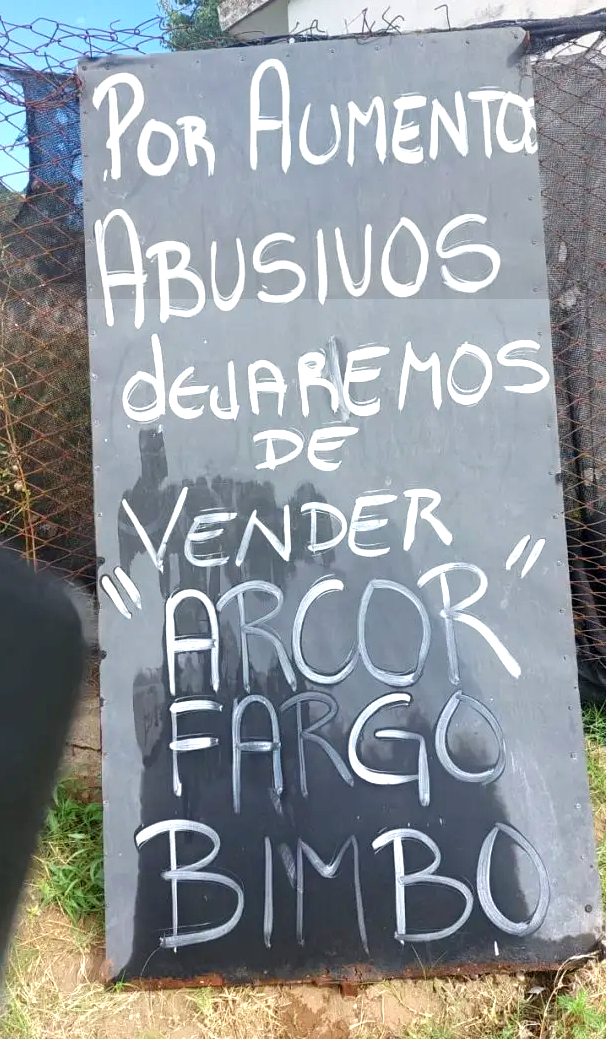 POR AUMENTOS
ABUSIVOS
dEJAREMOS
DE
VENDER
"ARCOR"
FARGO
BIMBO